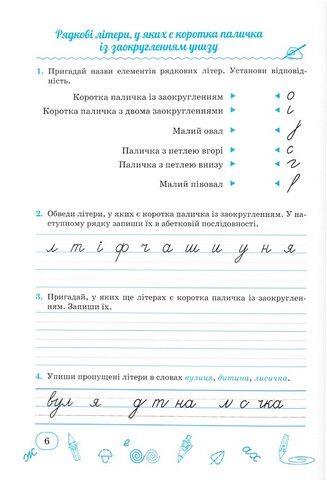 Рядкові літери, у яких є коротка паличка
із заокругленням унизу
1. Пригадай назви елементів рядкових літер. Установи відповід-
ність.
Коротка паличка із заокругленням
Коротка паличка з двома заокругленнями
Малий овал
Паличка з петлею вгорі
Паличка з петлею внизу
Малий півовал
2. Обведи літери, у яких є коротка паличка із заокругленням. У на-
ступному рядку запиши їх в абетковій послідовності.
л т і ф ч а ш и у н я
3. Пригадай, у яких ще літерах є коротка паличка із заокруглен-
ням. Запиши їх.
4. Упиши пропущені літери в словах вулиця, дитина, лисичка.
вул я д т на л с чка
6